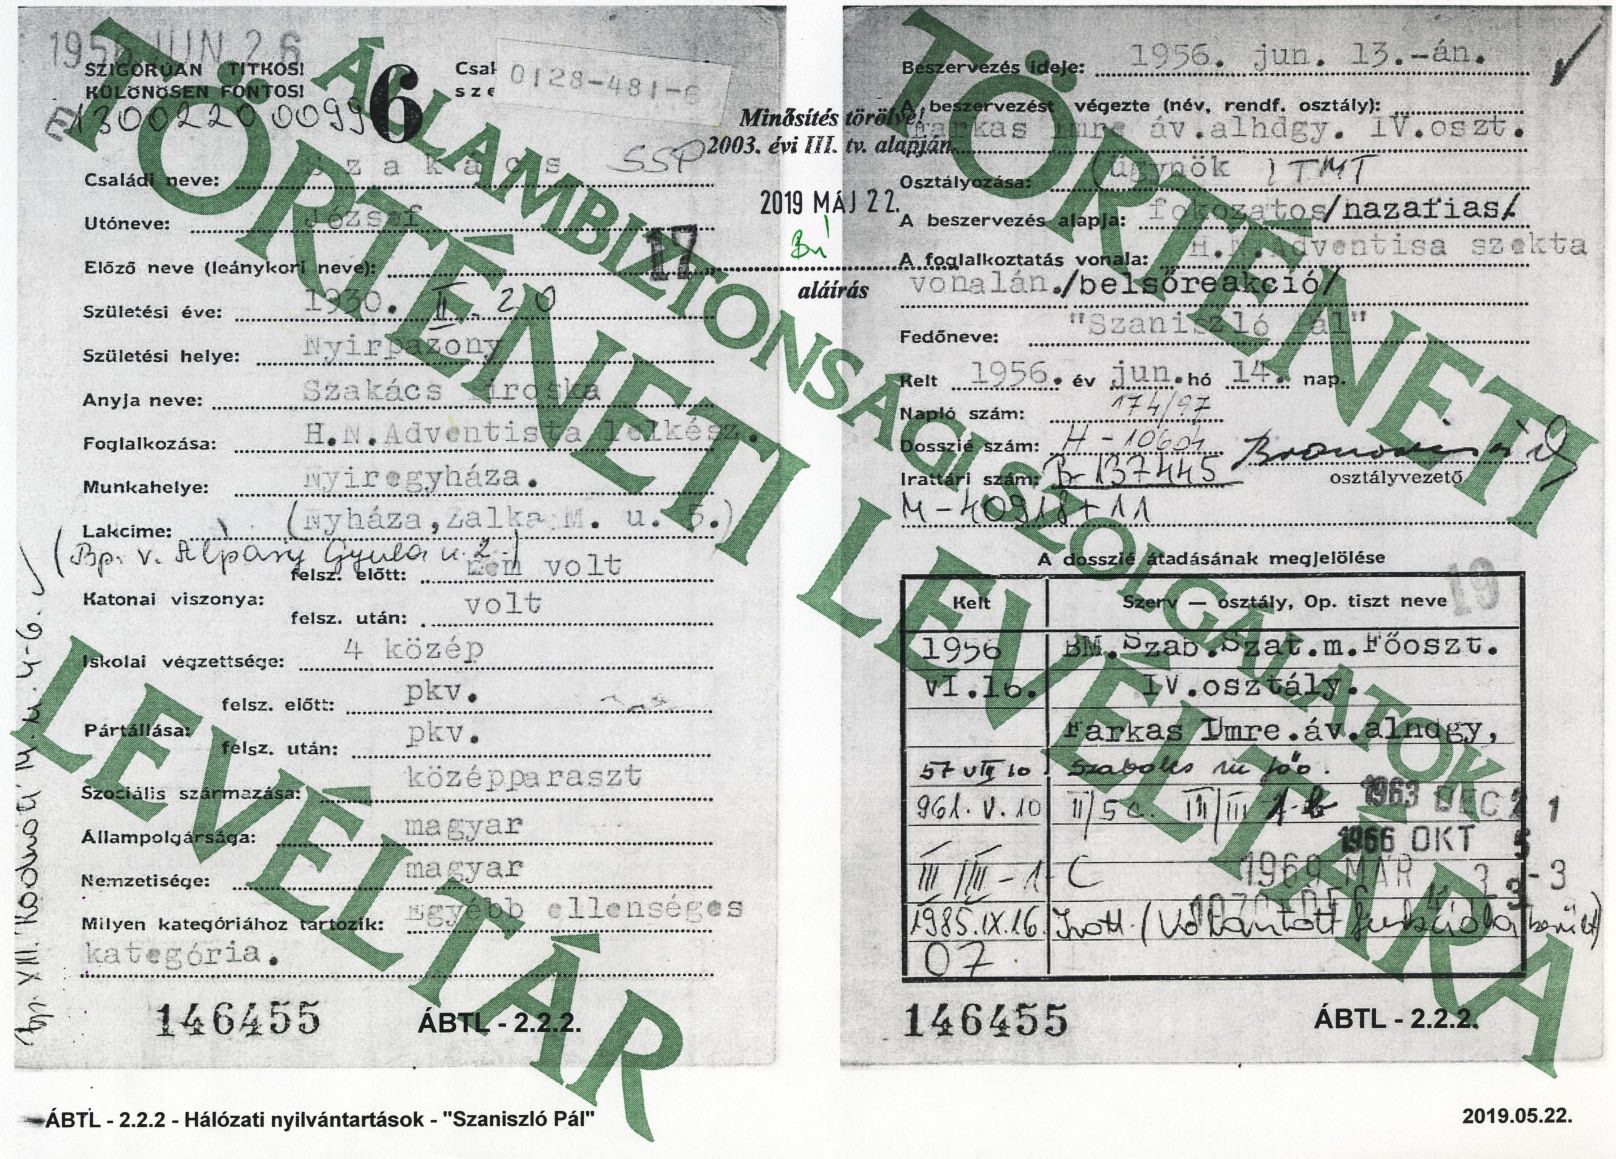 1956 JUN 26
SZIGORÚAN TITKOS!
KÜLÖNÖSEN FONTOS!
6
0128-481-6
E1300220 0099
Családi neve: Szakács SSP
Utóneve: József
17
Előző neve (leánykori neve):
Születési éve: 1930. II. 20
Születési helye: Nyirpazony
Anyja neve: Szakács Piroska
Foglalkozása: H.N.Adventista lelkész.
Munkahelye: Nyiregyháza.
Lakcíme: (Nyháza, Zalka M. u. 5.)
(Bp. V. Alpáry Gyula u. 2.)
Katonai viszonya:
felsz. előtt: nem volt
felsz. után: volt
Iskolai végzettsége: 4 közép
Pártállása:
felsz. előtt: pkv.
felsz. után: pkv.
Szociális származása: középparaszt
Állampolgársága: magyar
Nemzetisége: magyar
Milyen kategóriához tartozik: Egyébb ellenséges
kategória.
146455
ÁBTL - 2.2.2.
Minősítés törölve!
2003. évi III. tv. alapján
2019 MÁJ 22.
aláírás
Beszervezés ideje: 1956. jun. 13.-án.
A beszervezést végezte (név, rendf. osztály):
Farkas Imre áv.alhdgy. IV.oszt.
Osztályozása: (ügynök) TMT
A beszervezés alapja: fokozatos/hazafias/.
A foglalkoztatás vonala: H.N.Adventisa szekta
vonalán./belsőreakció/
Fedőneve: "Szaniszló Pál"
Kelt 1956. év jun. hó 14. nap.
Napló szám: 174/97
Dosszié szám: H-10604
Irattári szám: B-137445
osztályvezető
M-40918+11
A dosszié átadásának megjelölése
19
Kelt Szerv — osztály, Op. tiszt neve
1956 BM.Szab.Szat.m.Főoszt.
VI.16. IV.osztály.
Farkas Imre.áv.alhdgy,
57 VIII 10 Szabolcs m főo.
961. V. 10 II/5 c. III/III 1-b 1963 DEC 21
1966 OKT 5
III/III-1-C 1969 MAR
1985.IX.16. Irott.
07
146455
ÁBTL - 2.2.2.
ÁLLAMBIZTONSÁGI SZOLGÁLATOK
TÖRTÉNETI LEVÉLTÁRA
TÖRTÉNETI LEVÉLTÁR
ÁBTL - 2.2.2 - Hálózati nyilvántartások - "Szaniszló Pál"
2019.05.22.